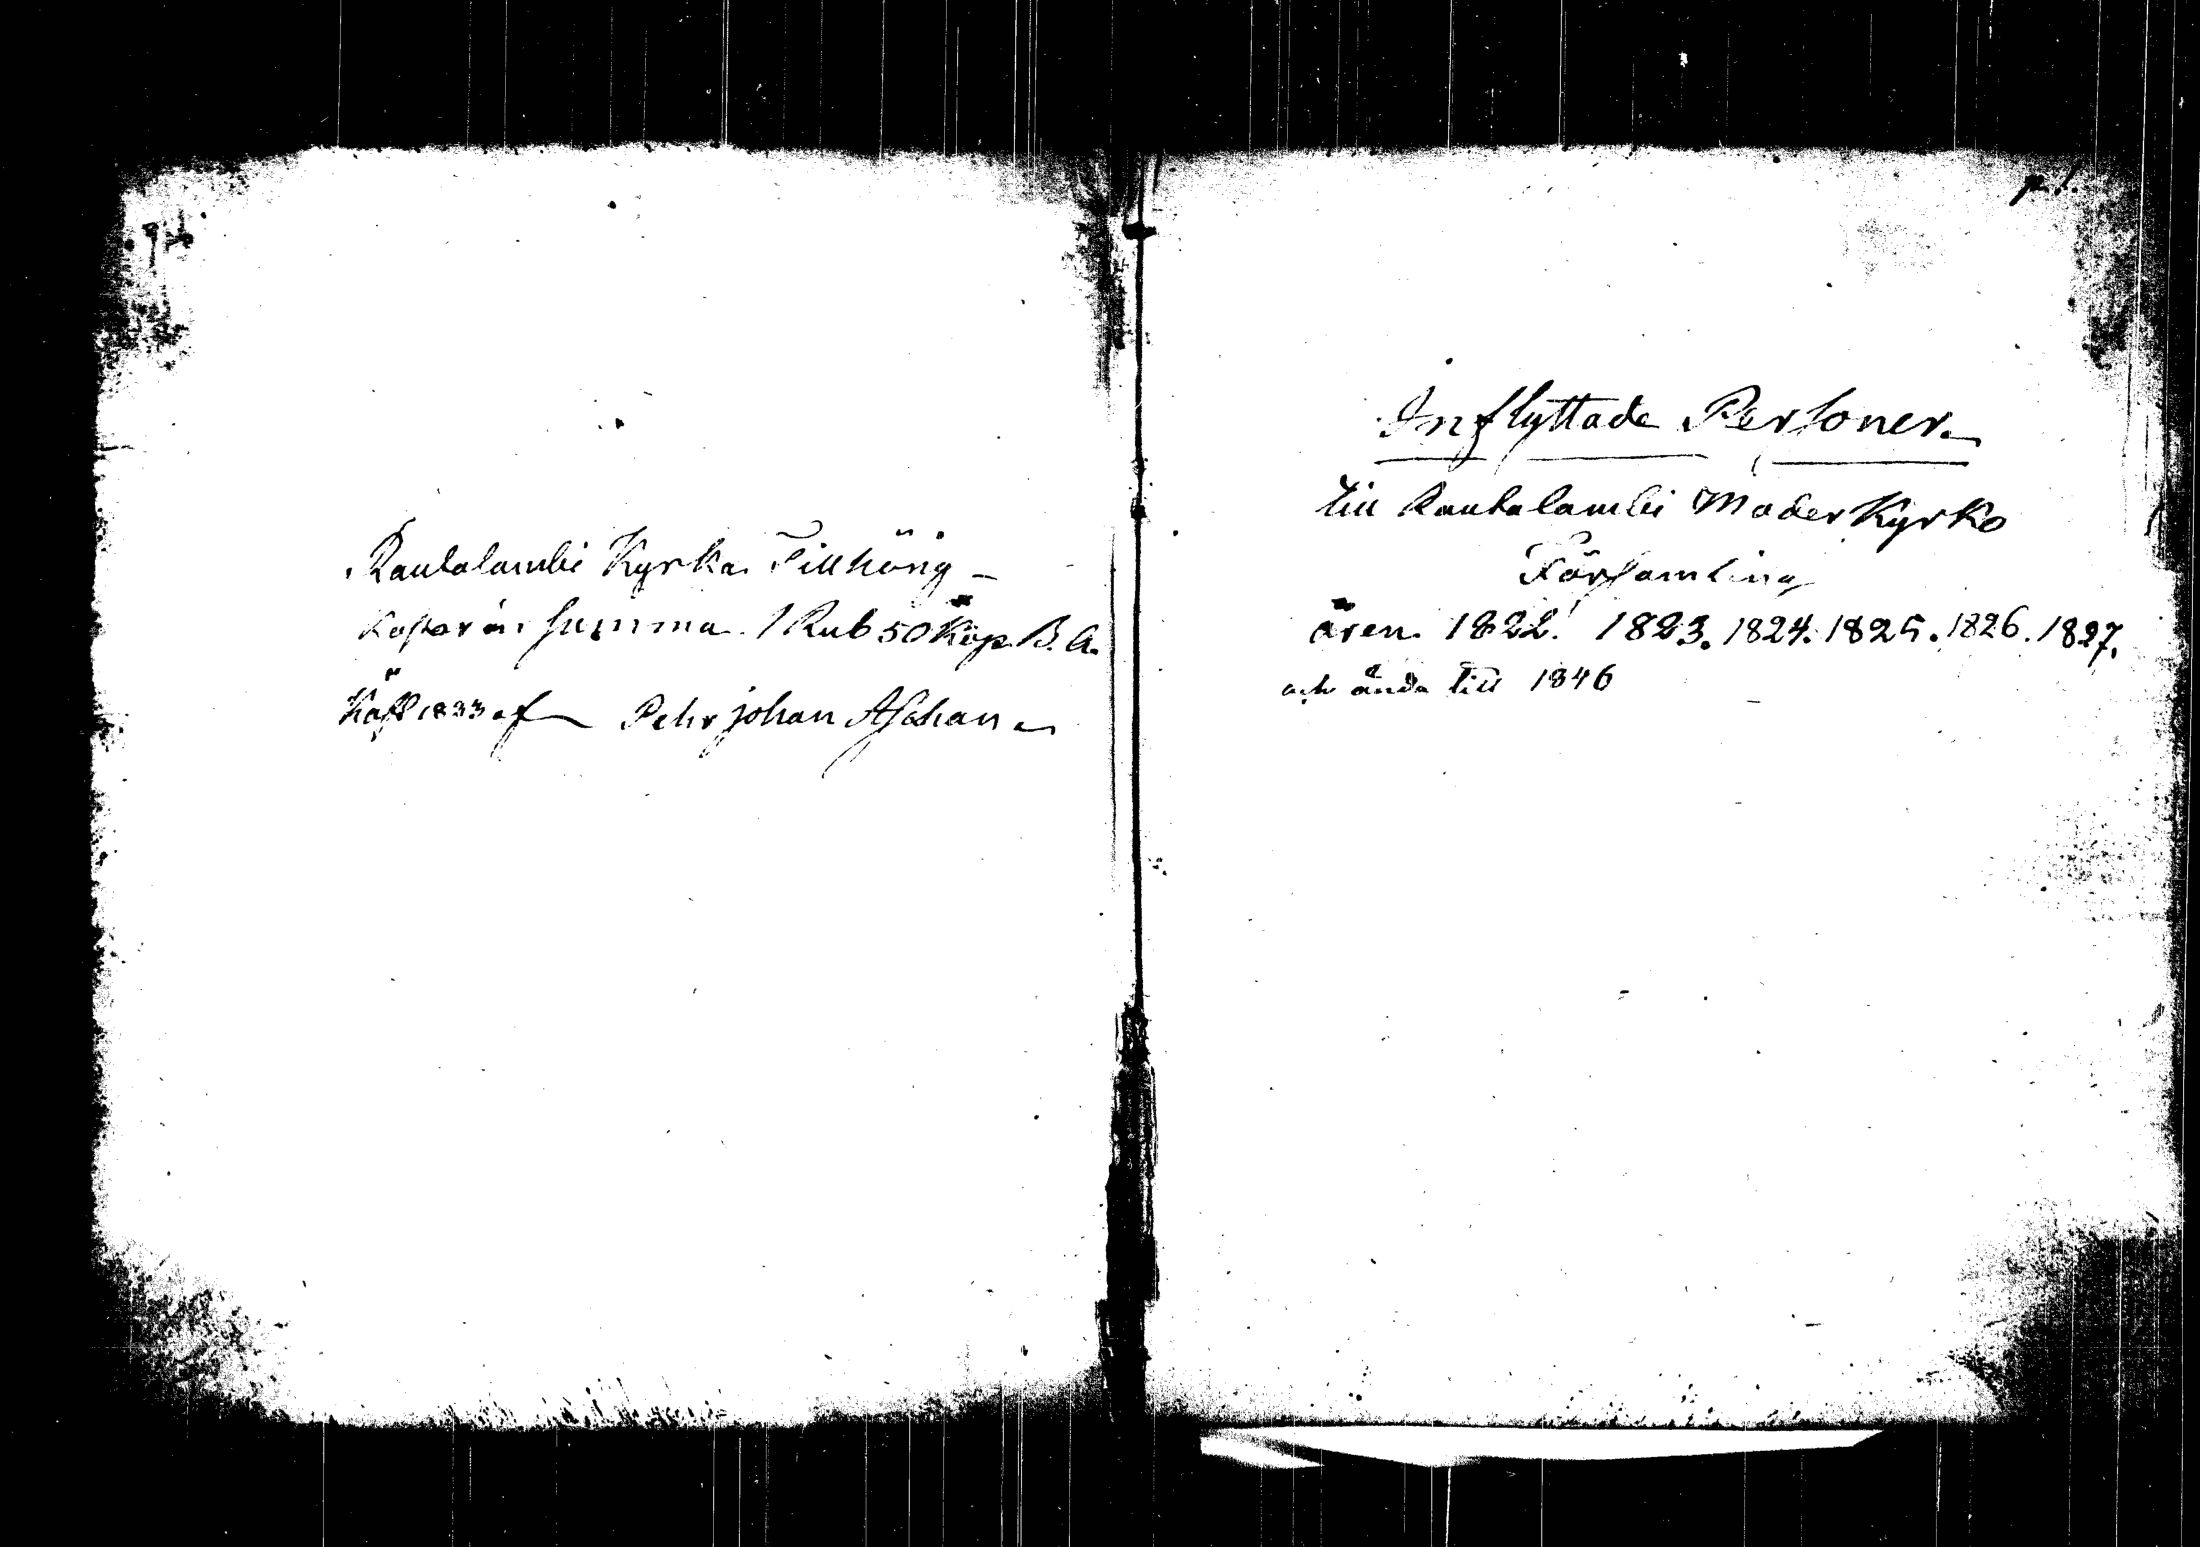 Rautalambi Kyrka Tillhörig
Kostar in summa 1 Rub 50 Kop. B. A.
Köpt 1833 af Pehr johan Aschan
p. 1.
Inflyttade Personer.
till Rautalambi Moder Kyrko
Församling
åren 1822. 1823. 1824. 1825. 1826. 1827.
och ända till 1846